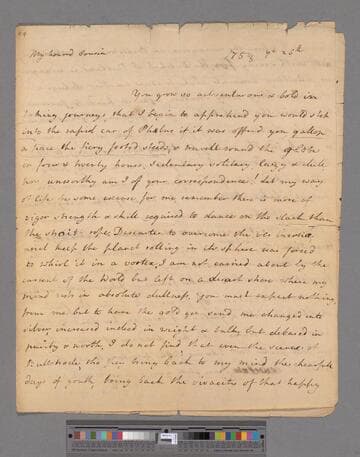 My honord Cousin
1753 26th
You grow so adventurous & bold in
taking journeys, that I begin to apprehend you would step
into the rapid car of if it was offerd you gallop
a pace the fiery footed steeds & travell round the globe
in four & twenty hours, sedentary solitary lazy & chill
how unworthy am I of your correspondence! let my way
of life be some excuse for me remember there is more of
vigor strength & skill required to dance on the slack than
the strait rope; Descartes to overcome the vis inertia
and keep the planet rolling in its sphere was forced
to whirl it in a vortex, I am not carried about by the
current of the World but left on a desert shore where my
mind rests in absolute dullness, you must expect nothing
from me but to have the gold you send me changed into
silver, increased indeed in weight & bulk, but debased in
purity & worth, I do not find that even the scenes of
Bullstrode, tho they bring back to my mind the chearfull
days of youth, bring back the vivacity of that happy